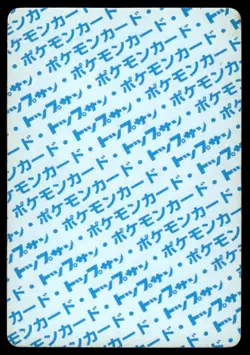 トップサン
ポケモンカード・
トップサン・ポケモンカード
ポケモンカード・トップサン・
トップサン・ポケモンカード・
ポケモンカード・トップサン・
・トップサン・ポケモンカード・
ポケモンカード・トップサン・
・トップサン・ポケモンカード・
ポケモンカード・トップサン・
・トップサン・ポケモンカード・
ポケモンカード・トップサン
・ポケモンカード・
トップサン